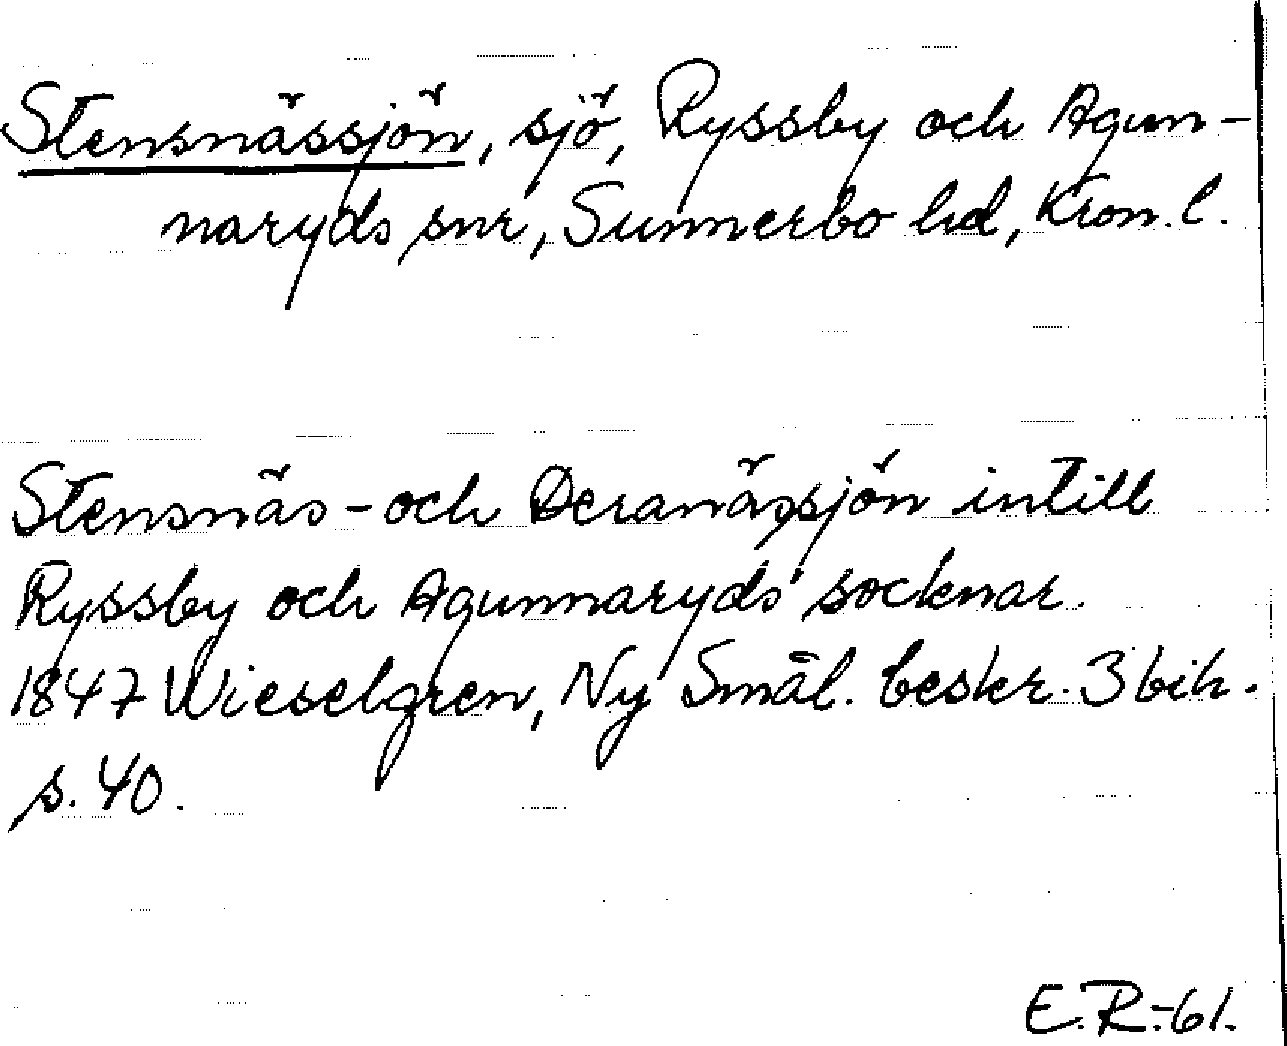 Stensnässjön, sjö, Ryssby och Agun-
naryds snr, Sunnerbo hd, Kron. l.
Stensnäs- och Deranässjön intill
Ryssby och Agunnaryds socknar.
1847 Wieselgren, Ny Smål. beskr. 3 bih.
s. 40.
E.R.-61.